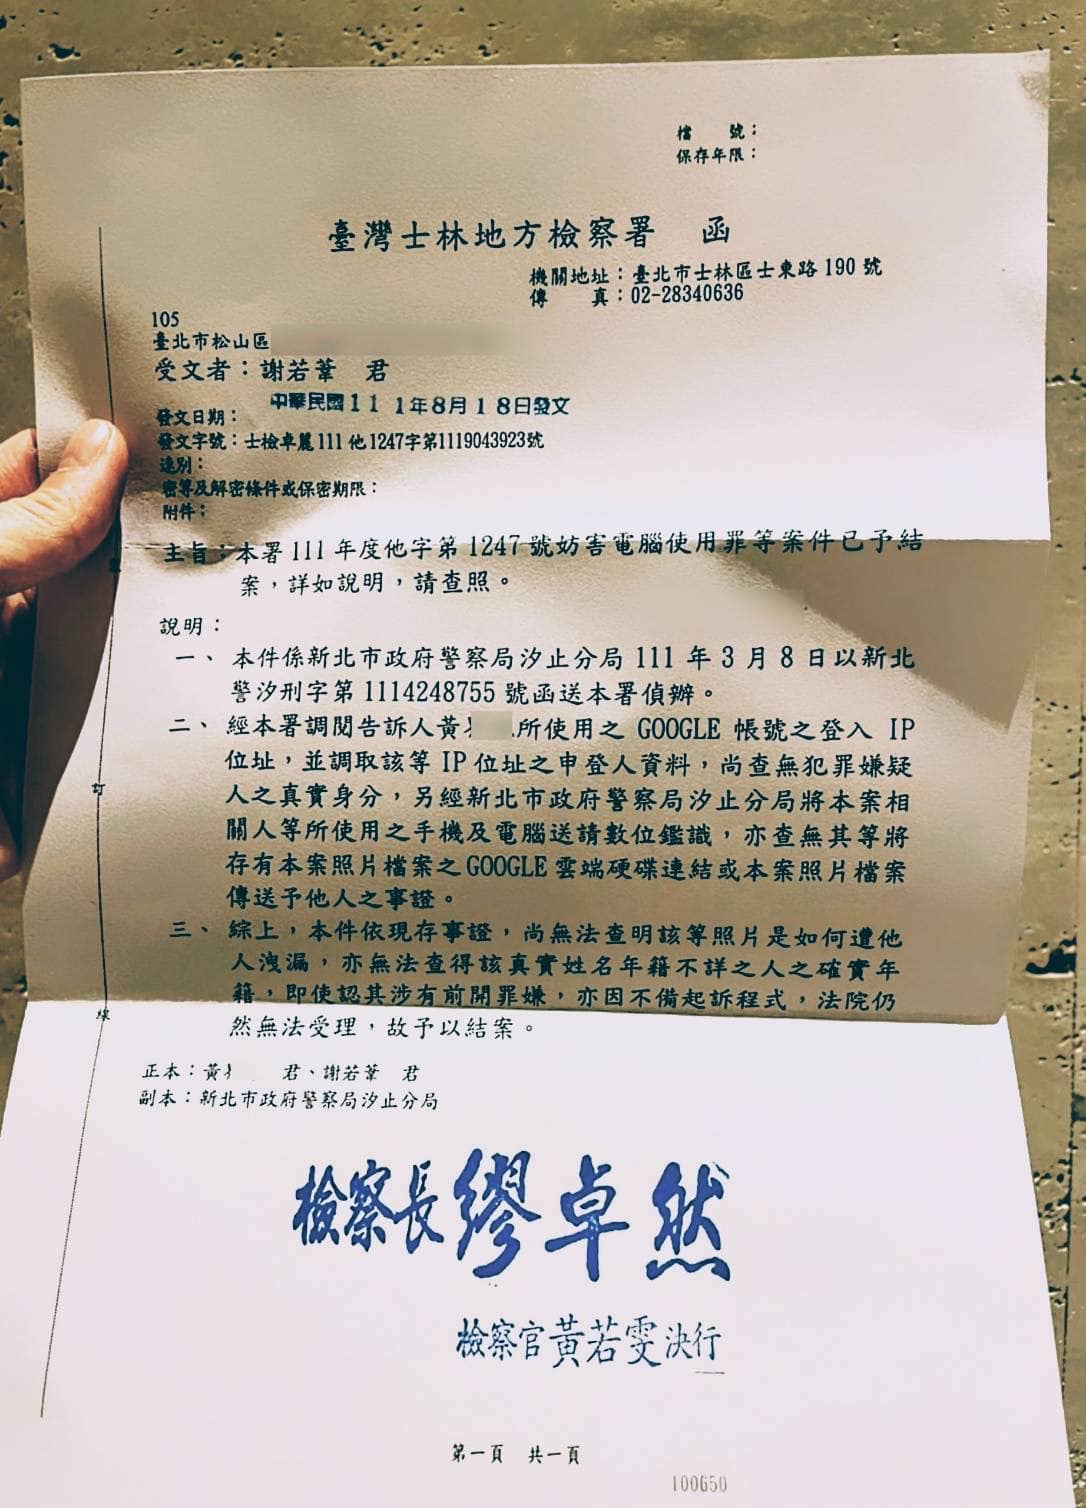 檔 號：
保存年限：
臺灣士林地方檢察署 函
機關地址：臺北市士林區士東路190號
傳 真：02-28340636
105
臺北市松山區
受文者：謝若葦 君
發文日期：中華民國111年8月18日發文
發文字號：士檢卓麗111他1247字第1119043923號
速別：
密等及解密條件或保密期限：
附件：
主旨：本署111年度他字第1247號妨害電腦使用罪等案件已予結
案，詳如說明，請查照。
說明：
一、本件係新北市政府警察局汐止分局111年3月8日以新北
警汐刑字第1114248755號函送本署偵辦。
二、經本署調閱告訴人黃 所使用之 GOOGLE 帳號之登入 IP
位址，並調取該等IP位址之申登人資料，尚查無犯罪嫌疑
人之真實身分，另經新北市政府警察局汐止分局將本案相
關人等所使用之手機及電腦送請數位鑑識，亦查無其等將
存有本案照片檔案之GOOGLE雲端硬碟連結或本案照片檔案
傳送予他人之事證。
三、綜上，本件依現存事證，尚無法查明該等照片是如何遭他
人洩漏，亦無法查得該真實姓名年籍不詳之人之確實年
籍，即使認其涉有前開罪嫌，亦因不備起訴程式，法院仍
然無法受理，故予以結案。
正本：黃 君、謝若葦 君
副本：新北市政府警察局汐止分局
檢察長繆卓然
檢察官黃若雯決行
第一頁 共一頁
100650
訂
線